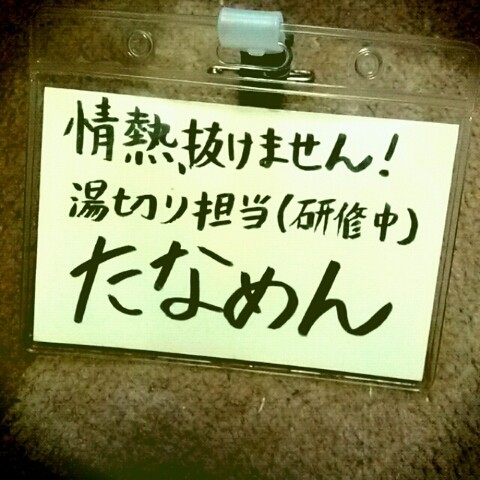 情熱、抜けません!
湯切り担当(研修中)
たなめん